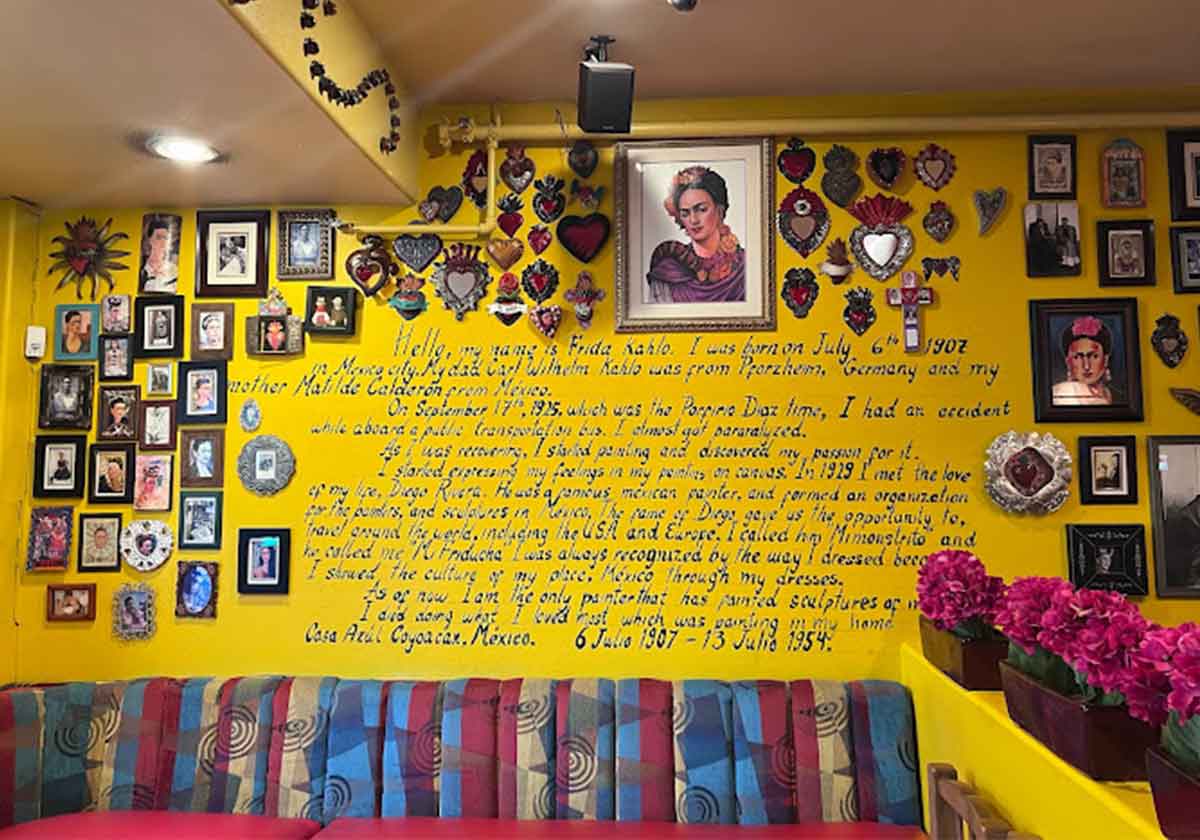 Hello, my name is Frida Kahlo. I was born on July 6th 1907
in Mexico city. My dad Carl Wilhelm Kahlo was from Pforzheim, Germany and my
mother Matilde Calderon from México.
On September 17th, 1925, which was the Porpirio Diaz time, I had an accident
while aboard a public transportation bus. I almost got pararalyzed.
As I was recovering, I started painting and discovered my passion for it.
I started expressing my feelings in my painting on canvas. In 1929 I met the love
of my life, Diego Rivera. He was a famous mexican painter, and formed an organization
for the painters, and sculptures in Mexico. The fame of Diego gave us the opportunity to,
travel around the world, including the U.S.A and Europe. I called him Mimonstrito and
he called me "Mi Friducha" I was always recognized by the way I dressed
I showed, the culture of my place, México through my dresses.
As of now I am the only painter that has painted sculptures of
I died doing what I loved most which was painting in my home
Casa Azúl Coyoacan, México. 6 Julio 1907 - 13 Julio 1954.